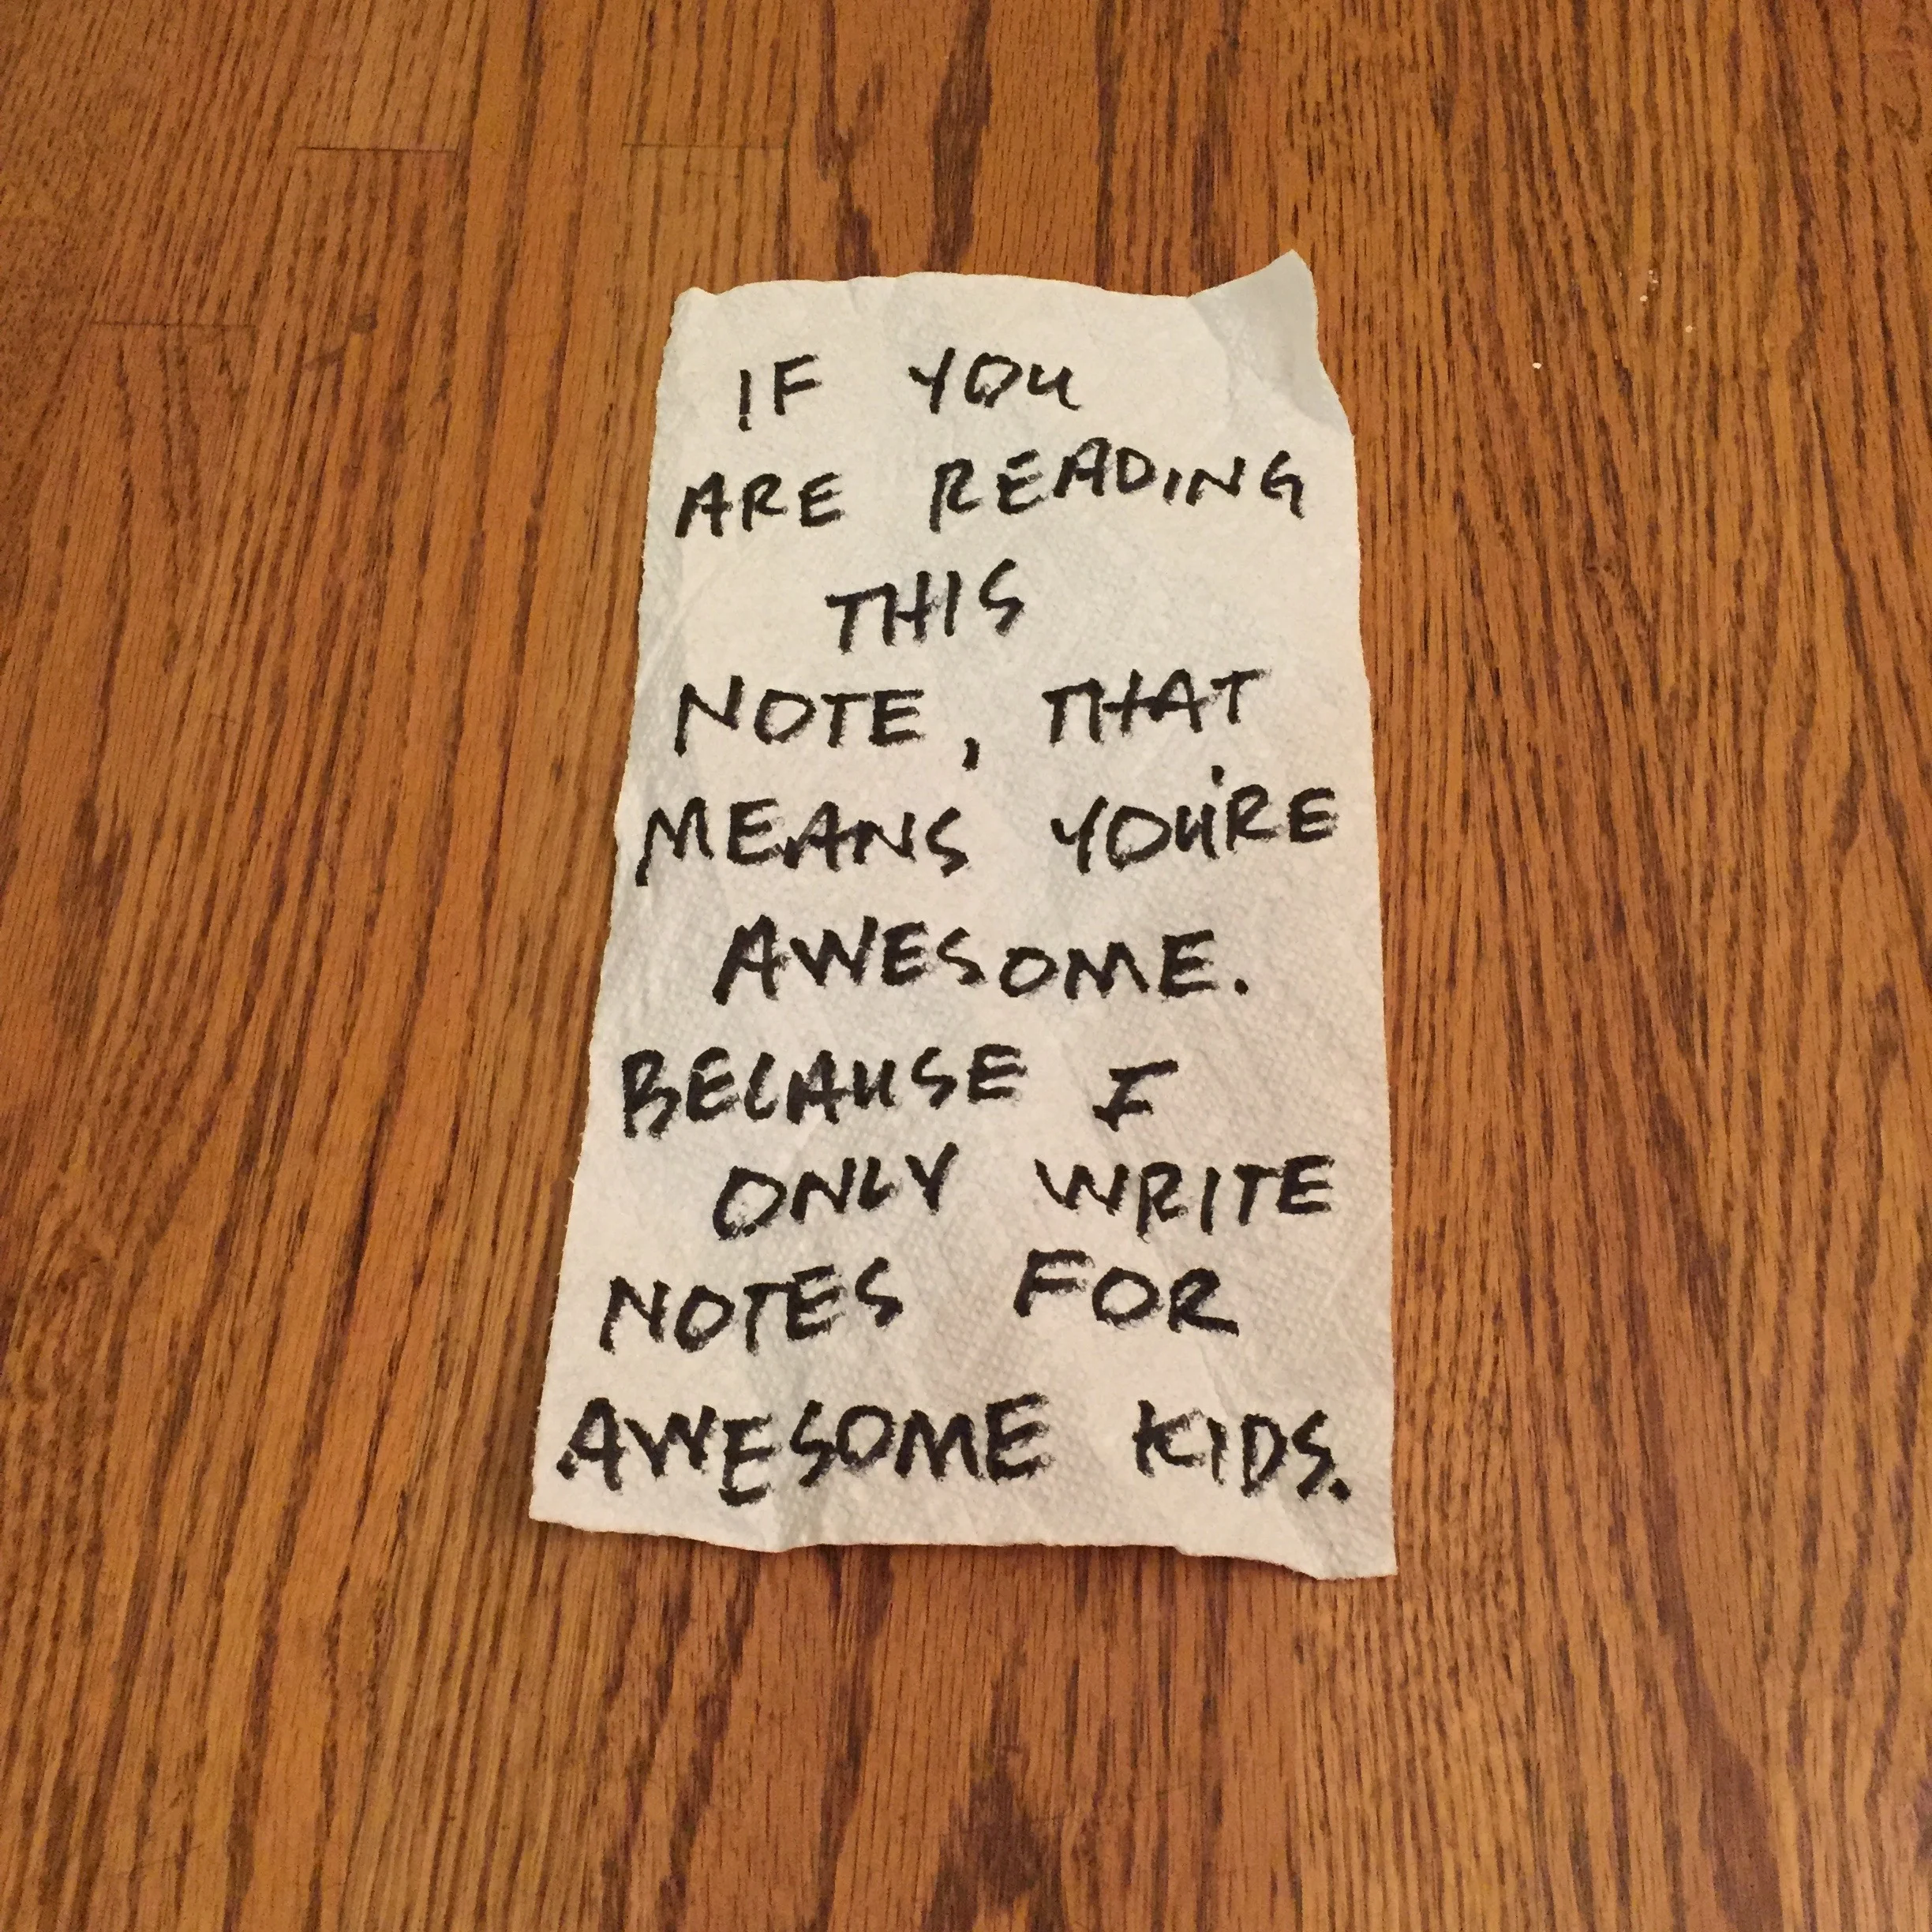 IF YOU
ARE READING
THIS
NOTE, THAT
MEANS YOU'RE
AWESOME.
BECAUSE I
ONLY WRITE
NOTES FOR
AWESOME KIDS.